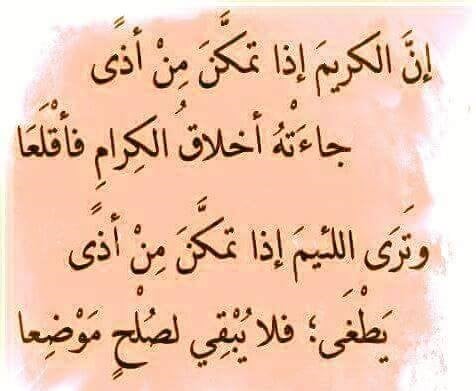 إنَّ الكريمَ إذا تمكَّنَ مِنْ أذًى
جاءَتْهُ أخلاقُ الكِرامِ فأقْلَعَا
وتَرَى اللئيمَ إذا تمكَّنَ مِنْ أذًى
يَطْغَى؛ فلا يُبْقِي لصُلْحٍ مَوْضِعا